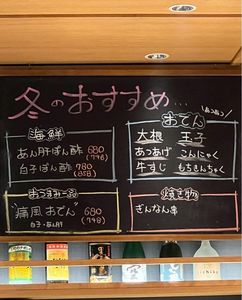 冬のおすすめ…
海鮮
あん肝ぽん酢 680
(748)
白子ぽん酢 780
(858)
おつまみ一品
"痛風おでん" 680
(748)
白子・あん肝
おでん
あつあつ
大根 玉子
あつあげ こんにゃく
牛すじ もちきんちゃく
焼き物
ぎんなん串